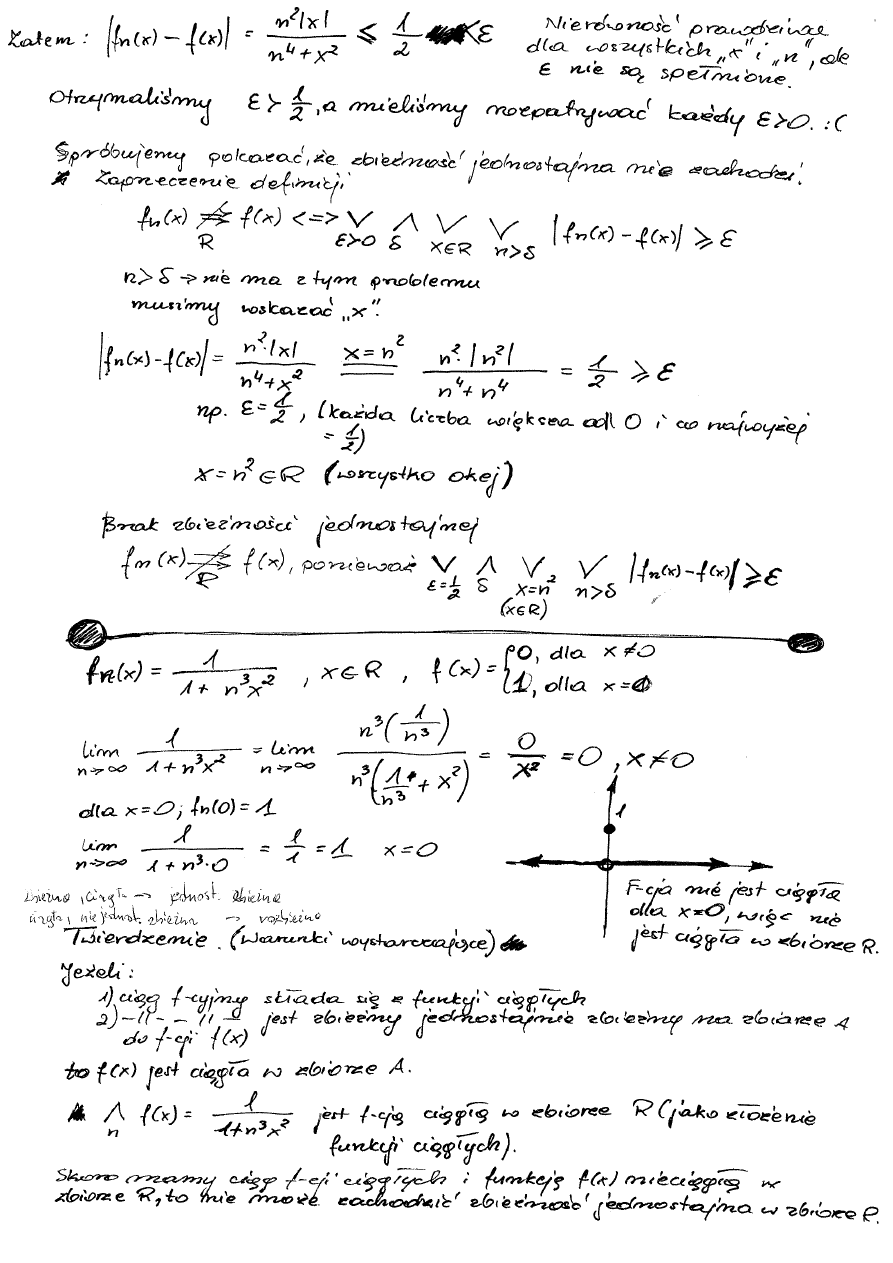 Zatem: |fn(x) - f(x)| = n²|x| / (n⁴+x²) ≤ 1/2 < ε
Nierówność prawdziwa
dla wszystkich „x" i „n", ale
ε nie są spełnione.
Otrzymaliśmy ε > 1/2, a mieliśmy rozpatrywać każdy ε>0. :(
Spróbujemy pokazać, że zbieżność jednostajna nie zachodzi.
Zaprzeczenie definicji
fn(x) ⇉̸ f(x) <=> ⋁ ⋀ ⋁ ⋁ |fn(x) - f(x)| ≥ ε
R ε>0 δ x∈R n>δ
n>δ → nie ma z tym problemu
musimy wskazać „x".
|fn(x) - f(x)| = n²·|x| / (n⁴+x²) x=n² n²·|n²| / (n⁴+n⁴) = 1/2 ≥ ε
np. ε = 1/2, (każda liczba większa od 0 i co najwyżej
= 1/2)
x = n² ∈ R (wszystko okej)
Brak zbieżności jednostajnej
fn(x) ⇉̸ f(x), ponieważ ⋁ ⋀ ⋁ ⋁ |fn(x) - f(x)| ≥ ε
R ε=1/2 δ x=n² n>δ
(x∈R)
fn(x) = 1 / (1+n³x²), x∈R, f(x) = { 0, dla x≠0
1, dla x=0
lim n→∞ 1 / (1+n³x²) = lim n→∞ n³(1/n³) / n³(1/n³ + x²) = 0/x² = 0, x≠0
dla x=0; fn(0) = 1
lim n→∞ 1 / (1+n³·0) = 1/1 = 1 x=0
1
F-cja nie jest ciągła
dla x=0, więc nie
jest ciągła w zbiorze R.
zbieżna, ciągła → jednost. zbieżna
ciągła, nie jednost. zbieżna → rozbieżna
Twierdzenie. (Warunki wystarczające)
Jeżeli:
1) ciąg f-cyjny składa się z funkcji ciągłych
2) -||- -||- jest zbieżny jednostajnie zbieżny na zbiorze A
do f-cji f(x)
to f(x) jest ciągła w zbiorze A.
⋀ n f(x) = 1 / (1+n³x²) jest f-cją ciągłą w zbiorze R (jako złożenie
funkcji ciągłych).
Skoro mamy ciąg f-cji ciągłych i funkcję f(x) nieciągłą w
zbiorze R, to nie może zachodzić zbieżność jednostajna w zbiorze R.